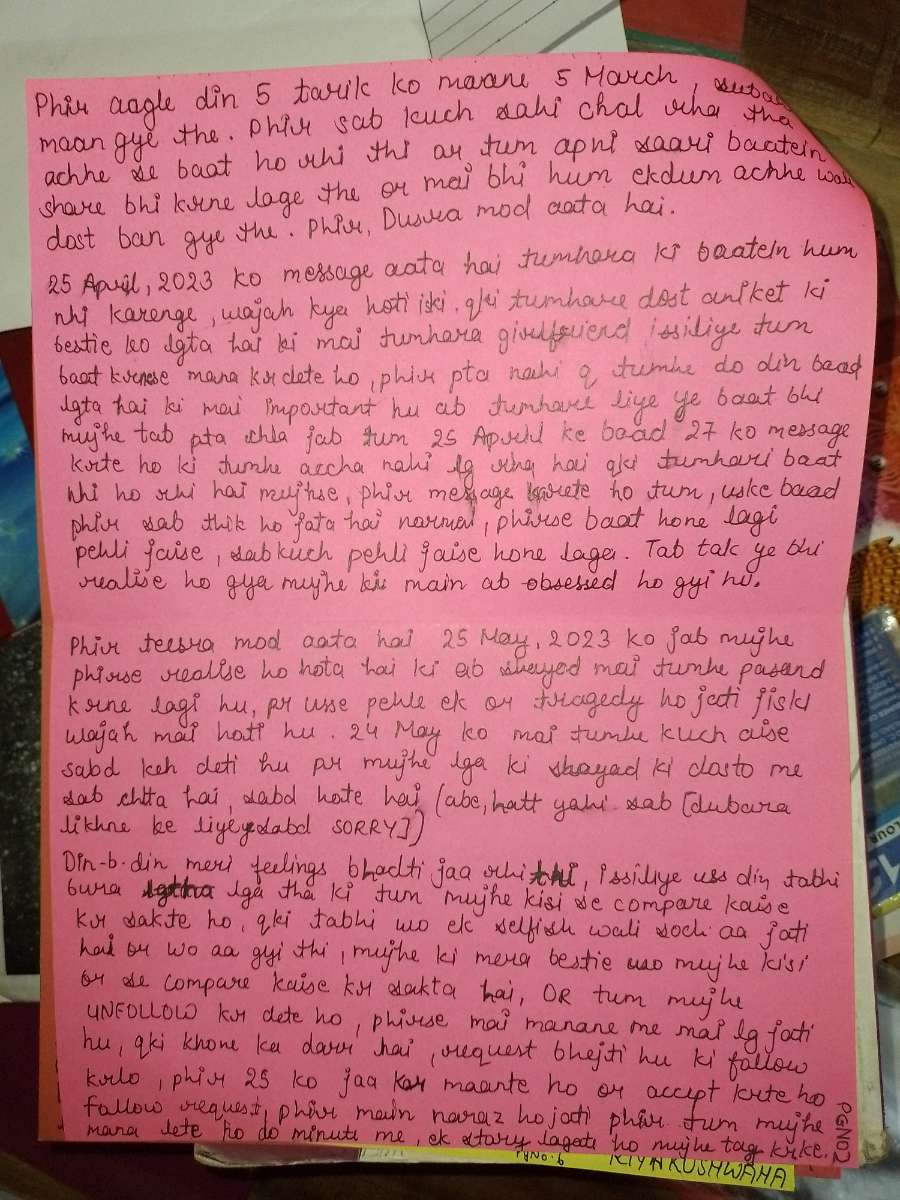 Phir aagle din 5 tarik ko maane 5 March, subah
maan gye the. Phir sab kuch sahi chal rha tha
achhe se baat ho rhi thi or tum apni saari baatein
share bhi krne lage the or mai bhi hum ekdum achhe wale
dost ban gye the. Phir, Dusra mod aata hai.
25 April, 2023 ko message aata hai tumhara ki baatein hum
nhi karenge, wajah kya hoti iski. qki tumhare dost aniket ki
bestie ko lgta hai ki mai tumhara girlfriend issiliye tum
baat krnese mana kr dete ho, phir pta nahi q tumhe do din baad
lgta hai ki mai important hu ab tumhare liye ye baat bhi
mujhe tab pta chla jab tum 25 April ke baad 27 ko message
krte ho ki tumhe accha nahi lg rha hai qki tumhari baat
nhi ho rhi hai mujhse, phir message karete ho tum, uske baad
phir sab thik ho jata hai normal, phirse baat hone lagi
pehli jaise, sab kuch pehli jaise hone laga. Tab tak ye bhi
realise ho gya mujhe ki main ab obsessed ho gyi hu.
Phir teesra mod aata hai 25 May, 2023 ko jab mujhe
phirse realise ho hota hai ki ab shayad mai tumhe pasand
krne lagi hu, pr usse pehle ek or tragedy ho jati jiski
wajah mai hoti hu. 24 May ko mai tumhe kuch aise
sabd keh deti hu pr mujhe lga ki shayad ki dosto me
sab chlta hai, sabd hote hai (abe, hatt yahi sab [dubara
likhne ke liye sabd SORRY])
Din-b-din meri feelings bhadti jaa rhi thi, issiliye uss din tabhi
bura lga tha ki tum mujhe kisi se compare kaise
kr sakte ho, qki tabhi wo ek selfish wali soch aa jati
hai or wo aa gyi thi, mujhe ki mera bestie mujhe kisi
or se compare kaise kr sakta hai, OR tum mujhe
UNFOLLOW kr dete ho, phirse mai manane me mai lg jati
hu, qki khone ka darr hai, request bhejti hu ki follow
krlo, phir 25 ko jaa kar maante ho or accept krte ho
follow request, phir main naraz ho jati phir tum mujhe
mana lete ho do minute me, ek story lagate ho mujhe tag krke.
PGNO2
PGNO.6
RIYA KUSHWAHA